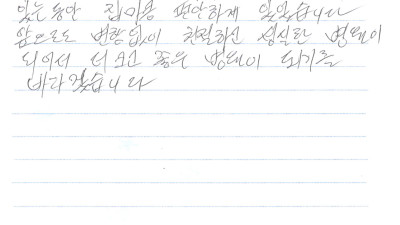 있는동안 집처럼 편안하게 있었습니다
앞으로도 변함없이 친절하신 성실한 병원이
되어서 더 크고 좋은 병원이 되기를
바라겠습니다